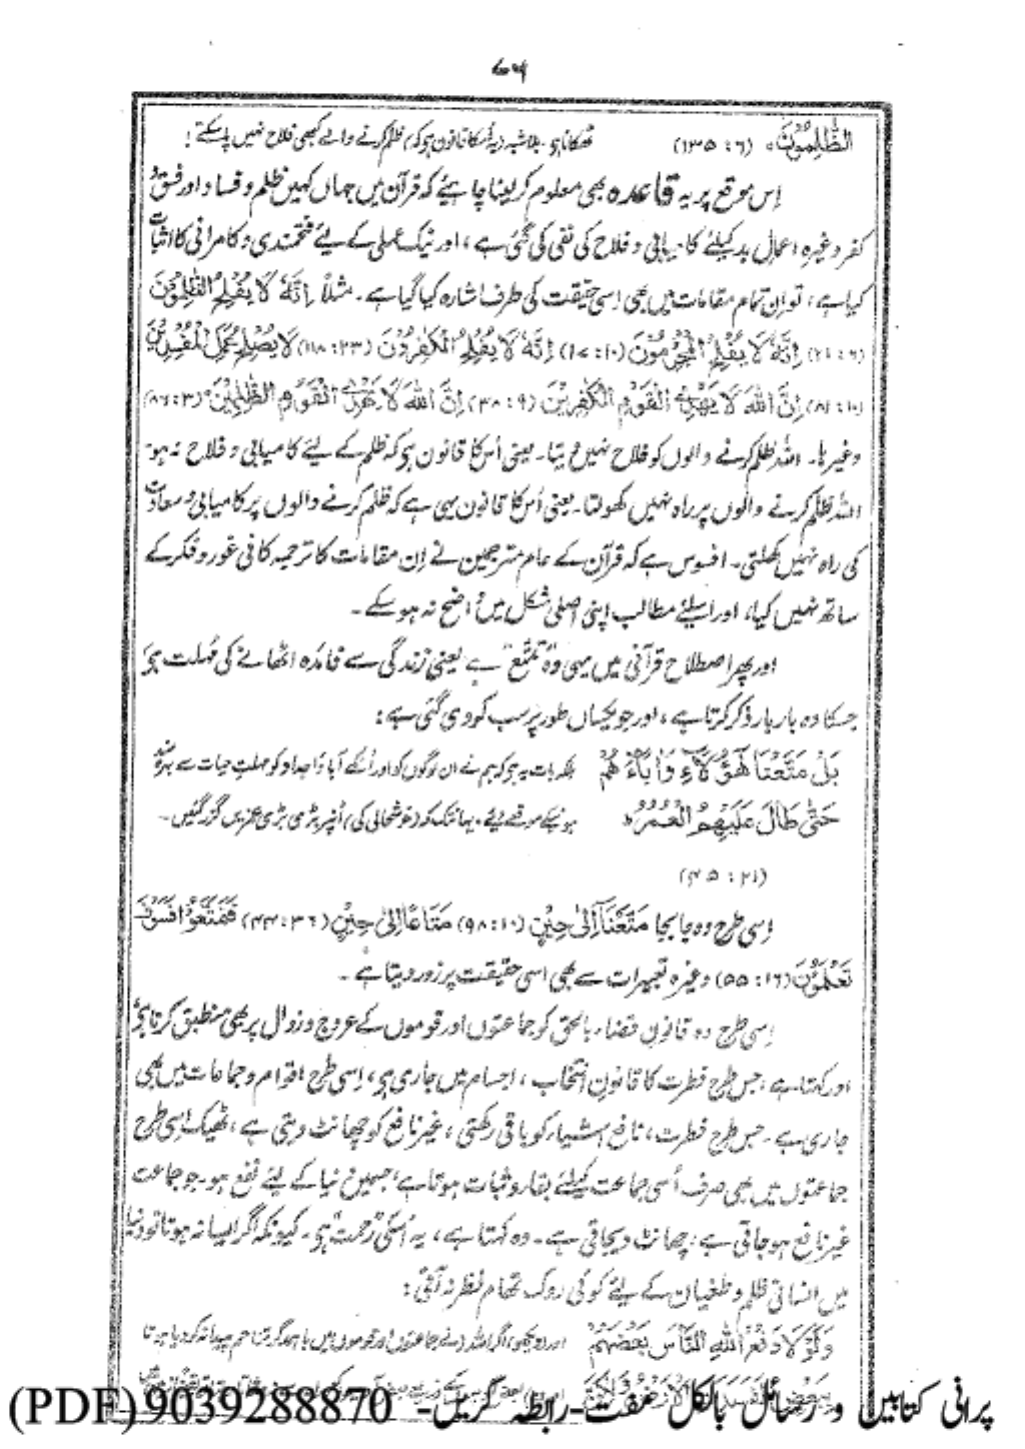 ۷۶
الظّٰلِمُوْنَ ۔ (۶ : ۱۳۵) ٹھکانا ہی ۔ بلا شبہ (یہ اُسکا قانون ہی کہ) ظلم کرنے والے کبھی فلاح نہیں پا سکتے !
اِس موقع پر یہ قاعدہ بھی معلوم کر لینا چاہیئے کہ قرآن میں جہاں کہیں ظلم و فساد اور فسق و
کفر وغیرہ اعمالِ بد کیلئے کامیابی و فلاح کی نفی کی گئی ہے ، اور نیک عملی کے لیئے فتحمندی و کامرانی کا اثبات
کیا ہے ، تو اِن تمام مقامات میں بھی اِسی حقیقت کی طرف اشارہ کیا گیا ہے ۔ مثلاً اِنَّهٗ لَا يُفْلِحُ الظّٰلِمُوْنَ
(۶ : ۲۱) اِنَّهٗ لَا يُفْلِحُ الْمُجْرِمُوْنَ (۱۰ : ۱۷) اِنَّهٗ لَا يُفْلِحُ الْكٰفِرُوْنَ (۲۳ : ۱۱۸) لَا يُصْلِحُ عَمَلَ الْمُفْسِدِيْنَ
(۱۰ : ۸۱) اِنَّ اللّٰهَ لَا يَهْدِي الْقَوْمَ الْكٰفِرِيْنَ (۹ : ۳۸) اِنَّ اللّٰهَ لَا يَهْدِي الْقَوْمَ الظّٰلِمِيْنَ (۳ : ۸۶)
وغیرہا۔ اللہ ظلم کرنے والوں کو فلاح نہیں دیتا۔ یعنی اُس کا قانون ہی کہ ظلم کے لیئے کامیابی و فلاح نہ ہو
اللہ ظلم کرنے والوں پر راہ نہیں کھولتا۔ یعنی اُس کا قانون یہی ہے کہ ظلم کرنے والوں پر کامیابی و سعادت
کی راہ نہیں کھلتی۔ افسوس ہے کہ قرآن کے عام مترجمین نے اِن مقامات کا ترجمہ کافی غور و فکر کے
ساتھ نہیں کیا، اور اسلیئے مطالب اپنی اصلی شکل میں واضح نہ ہو سکے ۔
اور پھر اصطلاح قرآنی میں یہی وہ "تمتّع" ہے یعنی زندگی سے فائدہ اٹھانے کی مُہلت ہی
جسکا وہ بار بار ذکر کرتا ہے ، اور جو یکساں طور پر سب کو دی گئی ہے :
بَلْ مَتَّعْنَا هٰٓؤُلَآءِ وَاٰبَآءَهُمْ بلکہ بات یہ ہی کہ ہم نے ان لوگوں کو اور اُنکے آباؤ اجداد کو مہلتِ حیات سے بہرہ مند
حَتّٰى طَالَ عَلَيْهِمُ الْعُمُرُ ہونیکے موقعے دیئے ۔ یہانتک کہ (خوشحالی کی) اُنپر بڑی بڑی عمریں گزر گئیں۔
(۲۱ : ۴۵)
اِسی طرح وہ جا بجا مَتَّعْنَآ اِلٰى حِيْنٍ (۱۰ : ۹۸) مَتَاعًا اِلٰى حِيْنٍ (۳۶ : ۴۴) فَتَمَتَّعُوْا فَسَوْفَ
تَعْلَمُوْنَ (۱۶ : ۵۵) وغیرہ تعبیرات سے بھی اسی حقیقت پر زور دیتا ہے ۔
اِسی طرح وہ قانونِ قضاء بالحق کو جماعتوں اور قوموں کے عروج و زوال پر بھی منطبق کرتا ہی
اور کہتا ہے ، جس طرح فطرت کا قانونِ انتخاب ، اجسام میں جاری ہی ، اِسی طرح اقوام و جماعات میں بھی
جاری ہے ۔ جس طرح فطرت ، نافع اشیاء کو باقی رکھتی ، غیر نافع کو چھانٹ دیتی ہے ، ٹھیک اِسی طرح
جماعتوں میں بھی صرف اُسی جماعت کیلئے بقا و ثبات ہوتا ہے جسمیں دنیا کے لیئے نفع ہو۔ جو جماعت
غیر نافع ہو جاتی ہے ، چھانٹ دیجاتی ہے ۔ وہ کہتا ہے ، یہ اُسکی "رحمت" ہی ۔ کیونکہ اگر ایسا نہ ہوتا تو دنیا
میں انسانی ظلم و طغیان کے لیئے کوئی روک تھام نظر نہ آتی :
وَلَوْلَا دَفْعُ اللّٰهِ النَّاسَ بَعْضَهُمْ اور (دیکھو ،) اگر اللہ (نے جماعتوں اور قوموں میں باہمدگر تزاحم پیدا نہ کر دیا ہوتا
پرانی کتابیں و رسائل بالکل مفت-رابطہ کریں- 9039288870 (PDF)